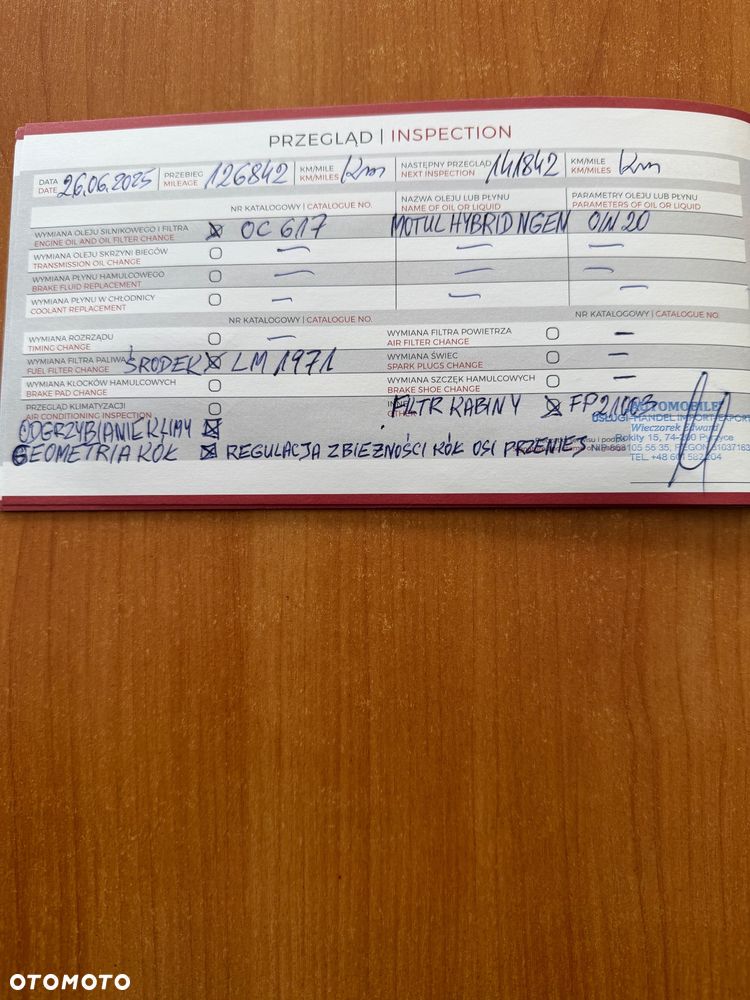 PRZEGLĄD | INSPECTION
DATA DATE 26.06.2025 PRZEBIEG MILEAGE 126842 KM/MILE KM/MILES Km NASTĘPNY PRZEGLĄD NEXT INSPECTION 141842 KM/MILE KM/MILES Km
NR KATALOGOWY | CATALOGUE NO. NAZWA OLEJU LUB PŁYNU NAME OF OIL OR LIQUID PARAMETRY OLEJU LUB PŁYNU PARAMETERS OF OIL OR LIQUID
WYMIANA OLEJU SILNIKOWEGO I FILTRA OC 617 MOTUL HYBRID NGEN 0W20
ENGINE OIL AND OIL FILTER CHANGE
WYMIANA OLEJU SKRZYNI BIEGÓW
TRANSMISSION OIL CHANGE
WYMIANA PŁYNU HAMULCOWEGO
BRAKE FLUID REPLACEMENT
WYMIANA PŁYNU W CHŁODNICY
COOLANT REPLACEMENT
NR KATALOGOWY | CATALOGUE NO. NR KATALOGOWY | CATALOGUE NO.
WYMIANA ROZRZĄDU WYMIANA FILTRA POWIETRZA
TIMING CHANGE AIR FILTER CHANGE
WYMIANA FILTRA PALIWA ŚRODEK LM 1971 WYMIANA ŚWIEC
FUEL FILTER CHANGE SPARK PLUGS CHANGE
WYMIANA KLOCKÓW HAMULCOWYCH WYMIANA SZCZĘK HAMULCOWYCH
BRAKE PAD CHANGE BRAKE SHOE CHANGE
PRZEGLĄD KLIMATYZACJI FILTR KABINY
AIR CONDITIONING INSPECTION
ODGRZYBIANIE KLIMY
GEOMETRIA KÓŁ REGULACJA ZBIEŻNOŚCI KÓŁ OSI PRZEDNIEJ
AUTOMOBILE
USŁUGI-HANDEL IMPORT-EXPORT
Wieczorek Edward
Rokity 15, 74-200 Pyrzyce
TEL. +48 601 582 204
OTOMOTO